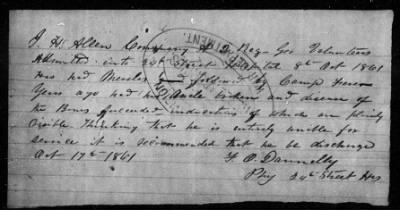 J. H. Allen Company 2 Reg. Ga Volunteers
Admitted into 24th Street Hospital 8th Oct 1861
Has had Measles and followed by Camp Fever
Years ago had his ancle broken and disease of
the Bones succeeded indications of which are plainly
visible. Thinking that he is entirely unable for
service it is recommended that he be discharge
Oct 17th 1861 F. O. Dannelly
Phy 24th Street Hos